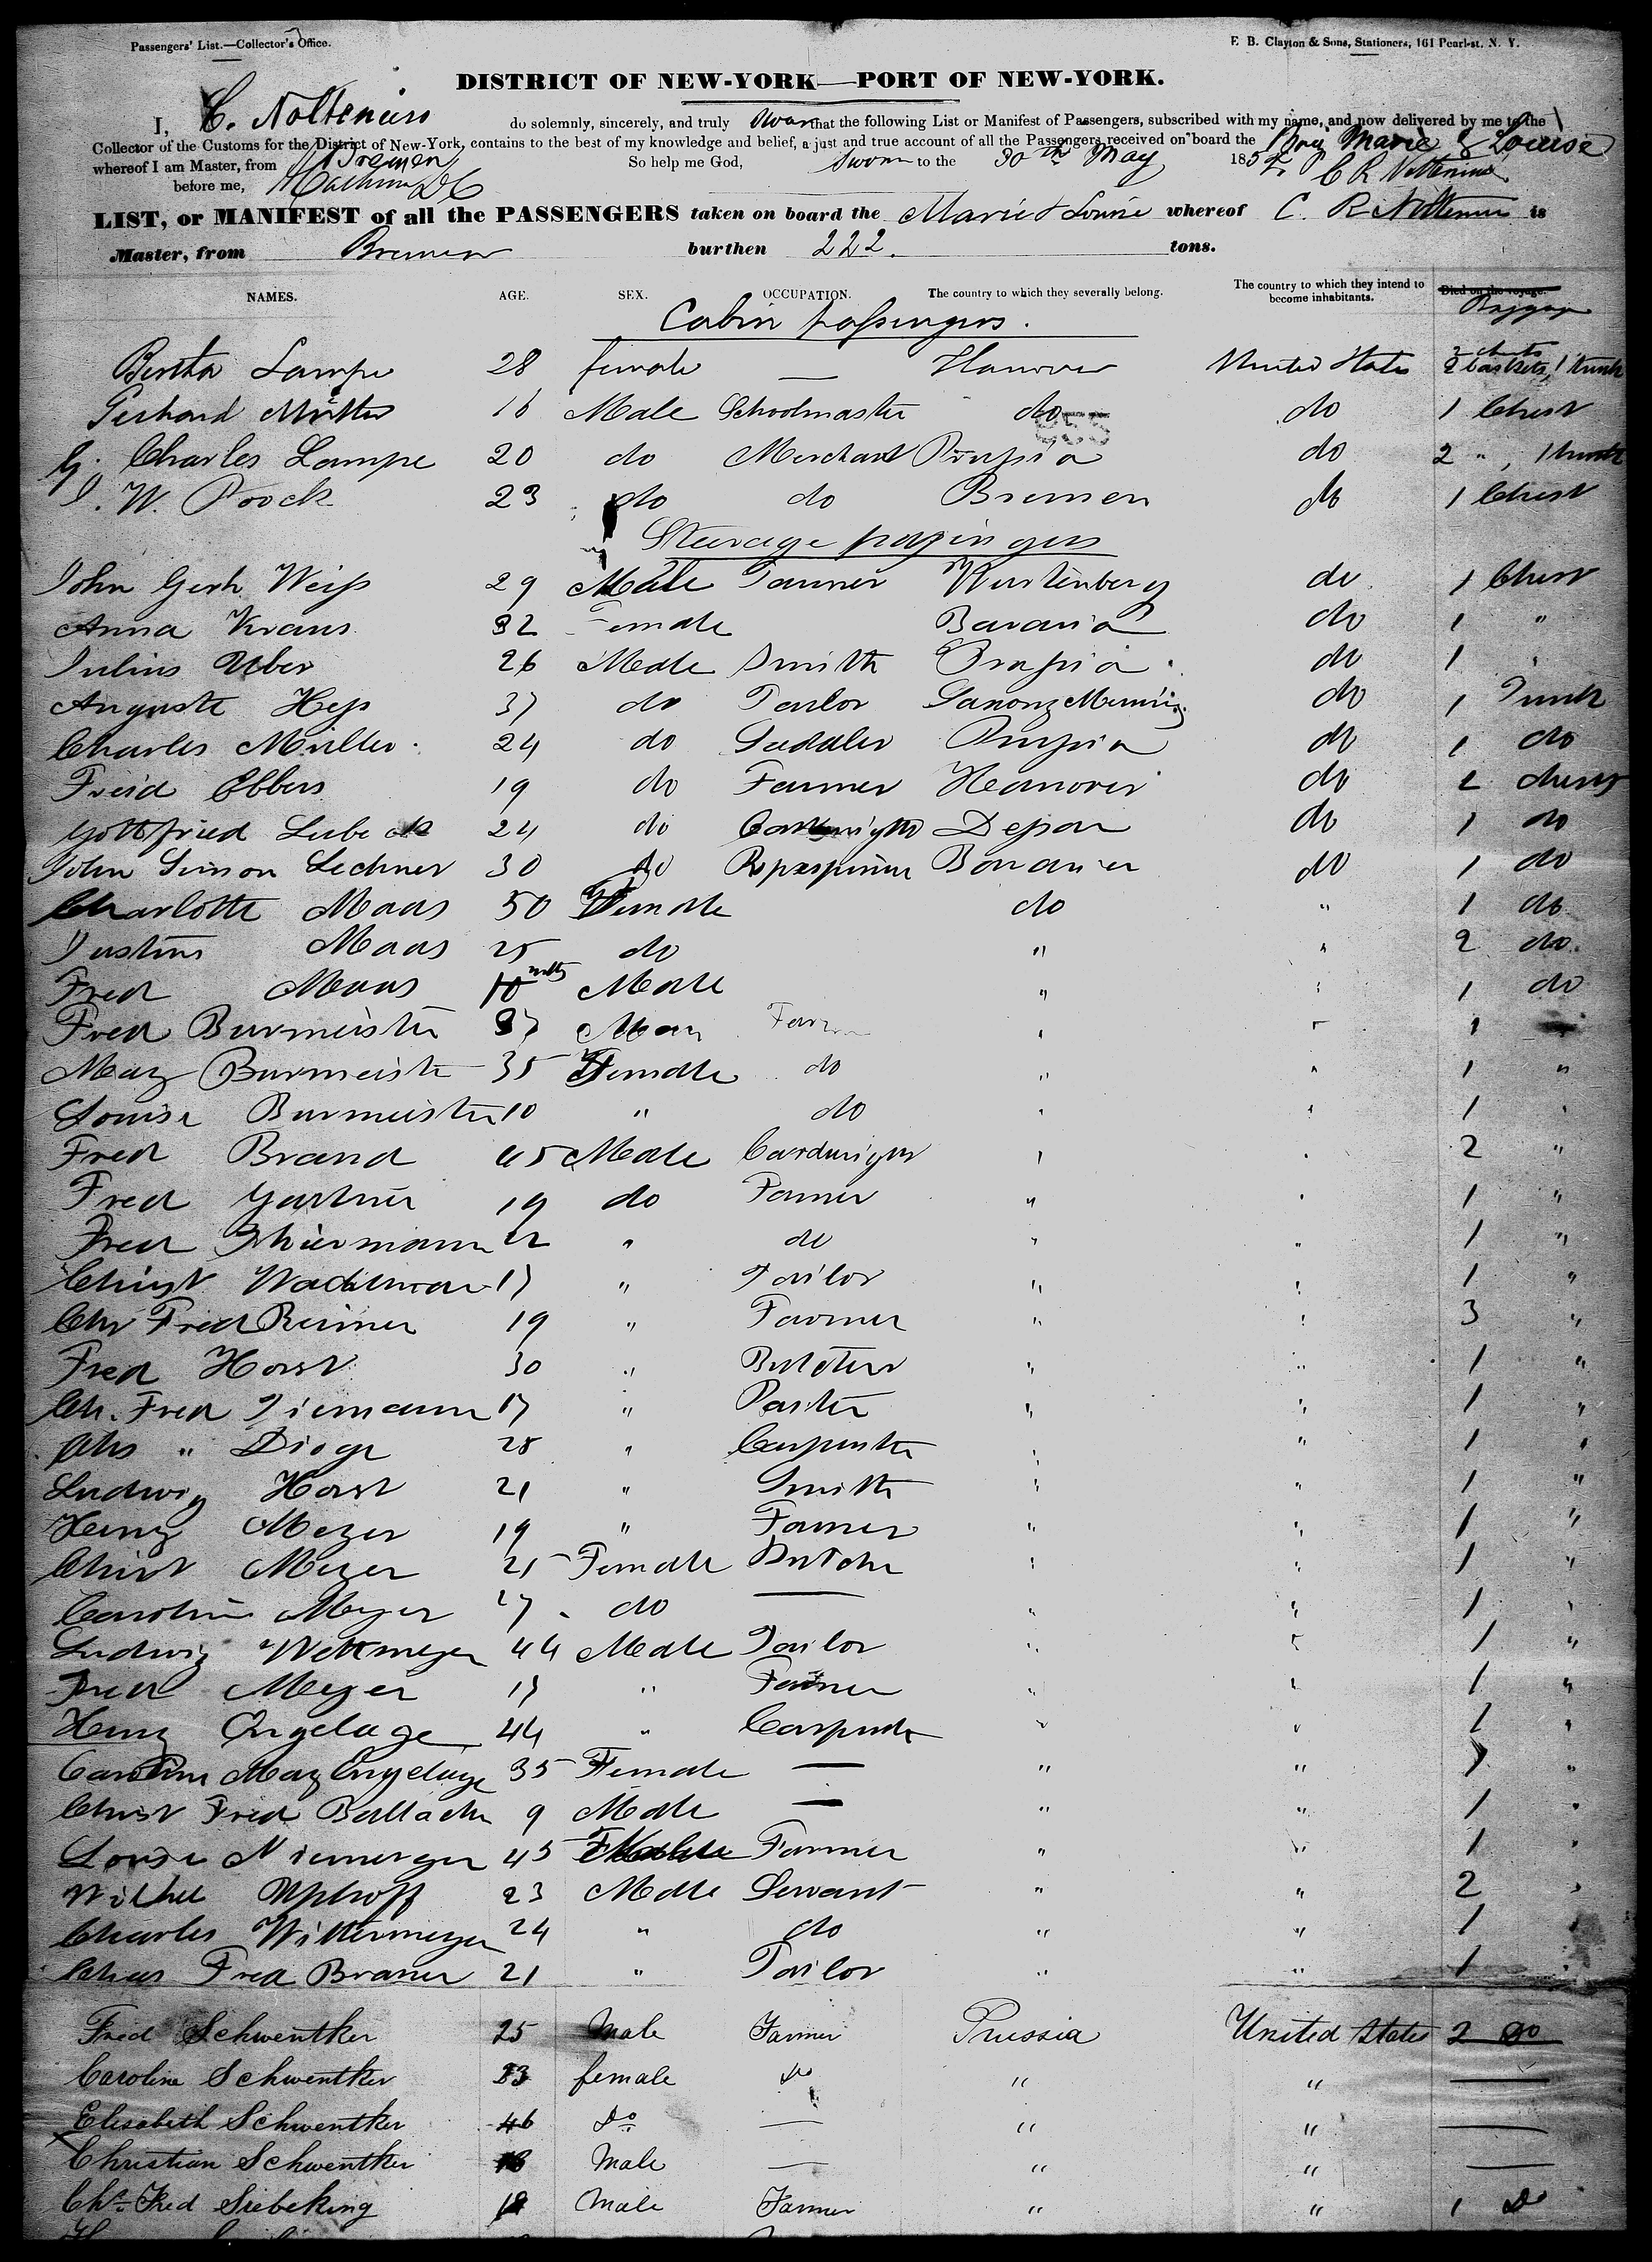 Passengers' List.—Collector's Office.
F. B. Clayton & Sons, Stationers, 161 Pearl-st. N. Y.
DISTRICT OF NEW-YORK—PORT OF NEW-YORK.
I, C. Noltenius do solemnly, sincerely, and truly swear that the following List or Manifest of Passengers, subscribed with my name, and now delivered by me to the
Collector of the Customs for the District of New-York, contains to the best of my knowledge and belief, a just and true account of all the Passengers received on board the Brig Marie & Louise
whereof I am Master, from Bremen So help me God, Sworn to the 30th May 185
before me, C R Noltenius
LIST, or MANIFEST of all the PASSENGERS taken on board the Marie & Louise whereof C. R Noltenius is
Master, from Bremen burthen 222. tons.
NAMES. AGE. SEX. OCCUPATION. The country to which they severally belong. The country to which they intend to become inhabitants. Died on the voyage.
Cabin passengers.
Bertha Lampe 28 female — Hanover United States 2 baskets, 1 trunk
Gerhard 16 Male Schoolmaster do do 1 Chest
G. Charles Lampe 20 do Merchant Prussia do 2 ", 1 trunk
I. W. Poock 23 do do Bremen do 1 Chest
Steerage passingers
John Gerh Weiss 29 Male Wurtenberg do 1 Chest
Anna Kraus 32 Female Bavaria do 1 "
Julius Uber 26 Male Smith Prussia do 1 "
Auguste Hess 37 do Tailor do 1 Trunk
Charles Müller 24 do Saddler Prussia do 1 do
Fried Ebbers 19 do Farmer Hanover do 2 chests
Gottfried Lubeck 24 do Dessau do 1 do
John Simon Lechner 30 do Bavaria do 1 do
Charlotte Maas 50 Female do " 1 do
Justine Maas 25 do " " 2 do
Fred Maas 10 mths Male " " 1 do
Fred Burmeister 37 Male Farmer " " 1
Mary Burmeister 35 Female do " " 1 "
Louise Burmeister 10 " do " " 1 "
Fred Brand 45 Male Cardwright " " 2 "
Fred Gartner 19 do Farmer " " 1 "
Fred 22 " do " " 1 "
Christ 17 " Tailor " " 1 "
Chr Fred Reimer 19 " Farmer " " 3 "
Fred Horst 30 " Butcher " " 1 "
Ch. Fred Tiemann 17 " " " 1 "
Chs " Dioge 28 " Carpenter " " 1 "
Ludwig Horst 21 " Smith " " 1 "
Henry Meyer 19 " Farmer " " 1 "
Christ Meyer 25 Female Butcher " " 1 "
Caroline Meyer 27 do — " " 1 "
Ludwig 44 Male Tailor " " 1 "
Fred Meyer 17 " Farmer " " 1 "
Henry Engelage 44 " Carpenter " " 1 "
Caroline Mary Engelage 35 Female — " " 1 "
Christ Fred 9 Male — " " 1 "
Louise Niemeyer 45 Farmer " " 1 "
Wilhel Uphoff 23 Male Servant " " 2 "
Charles Wittermeyer 24 " do " " 1 "
Chas Fred Braner 21 " Tailor " " 1 "
Fred Schwentker 25 Male Farmer Prussia United States 2 do
Caroline Schwentker 23 female do " " —
Elisabeth Schwentker 46 do — " " —
Christian Schwentker 18 Male — " " —
Chs. Fred Siebeking 18 Male Farmer " " 1 do